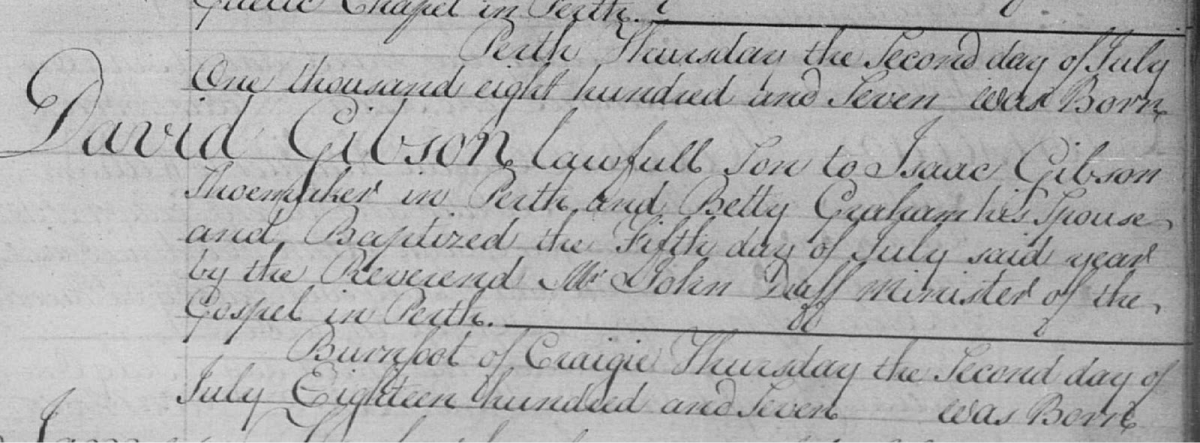 Chapel in Perth.
Perth Thursday the Second day of July
One thousand eight hundred and Seven was Born
David Gibson lawfull Son to Isaac Gibson
Shoemaker in Perth and Betty Graham his Spouse
and Baptized the Fifth day of July said year
by the Reverend Mr John Duff Minister of the
Gospel in Perth.
Burnfoot of Craigie Thursday the Second day of
July Eighteen hundred and Seven was Born